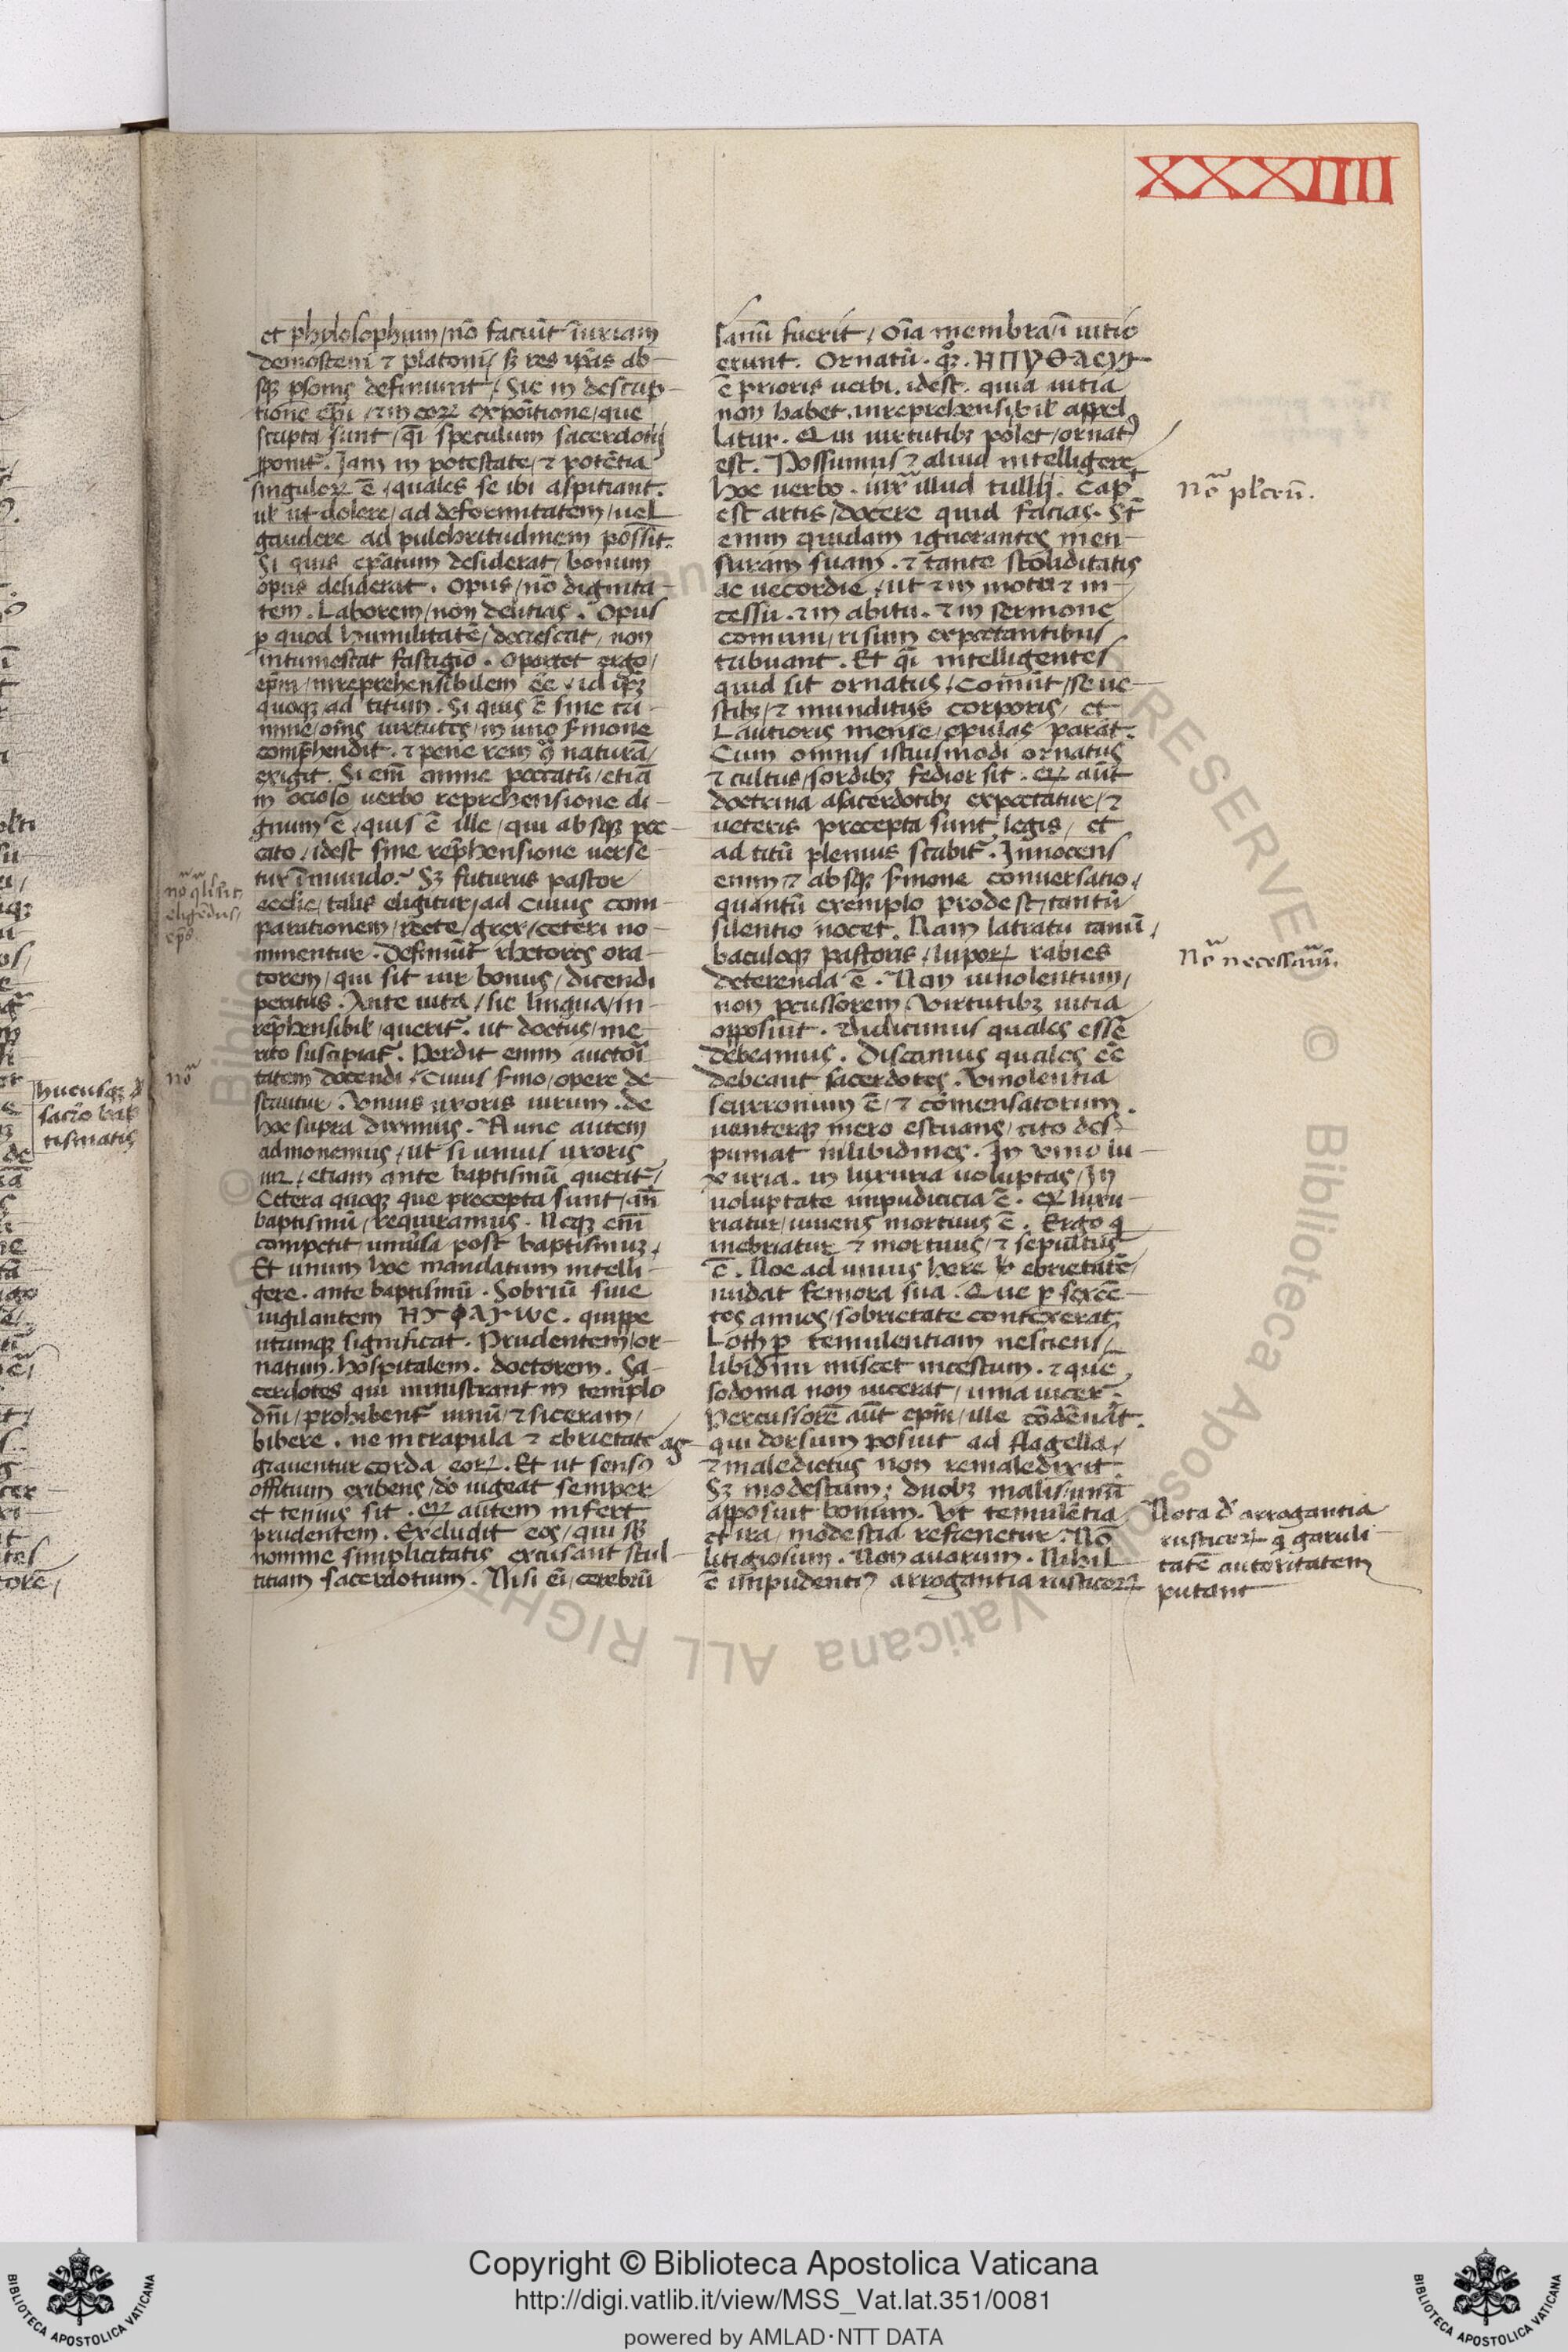 XXXIIII
et phylosophum/nō faciūt īuriam
demosteni ⁊ platoni/ sꝫ res ip̄as ab-
sqꝫ p̱sonis definiunt/ Sic in descrip-
tione ep̄i /⁊ in eoꝝ expoītione/que
scripta sunt/q̄i speculum sacerdotij
ꝓponit᷑. Jam in potestate/⁊ potētia
singuloꝝ ē/quales se ibi aspitiant.
ul̵ ut dolere/ad deformitatem/uel
gaudere ad pulchritudinem possit.
Si quis ep̄atum desiderat/bonum
opus desiderat. Opus/nō dignita-
tem. Laborem/non delitias. Opus
ꝑ quod humilitatē/decrescat/non
intumescat fastigio. Oportet ergo/
ep̄m/inreprehensibilem ēē/id ip̄ꝫ
quoqꝫ ad titum. Si quis ē sine cri-
mine/oīng uirtutes/in uno s̄mone
comp̄hendit. ⁊ pene rem ꝯ̄ naturā/
exigit. Si em̄ omne peccatū/etiā
in ocioso uerbo reprehensione di-
gnum ē/quis ē ille/qui absqꝫ pec-
cato/idest sine rep̄hensione uerse-
tur ī mundo? Sꝫ futurus pastor
ecclie/talis eligitur/ad cuius com-
parationem/recte/grex/ceteri no-
minentur. Definiūt rhetores ora-
torem/qui sit uir bonus/dicendi
peritus. Ante uita/sic lingua/in-
rep̄hensibil̵/querit᷑. ut doctus/me-
rito suscipiat᷑. Perdit enim auctoī
tatem docendi/Cuius s̄mo/opere de-
struitur. Unius uxoris uirum. de
hoc supra diximus. Nunc autem
admonemus/ut si unius uxoris
uir/etiam ante baptismū querit᷑/
Cetera quoqꝫ que precepta sunt/an̄
baptismū/requiramus. Neqꝫ em̄
competit uniūsa post baptismuꝫ/
Et unum hoc mandatum intelli-
gere. ante baptismū. Sobriū siue
uigilantem ΗΥΦΑΥWC. quippe
utrumqꝫ significat. Prudentem/or-
natum. hospitalem. doctorem. Sa-
cerdotes qui ministrant in templo
dn̄i/prohibent᷑ uinū/⁊ siceram/
bibere. ne in crapula ⁊ ebrietate ag-
grauentur corda eoꝝ. Et ut sensꝰ
offitium exibens/dō uigeat semper
et tenuis sit. Qꝫ autem infert
prudentem. Excludit eos/qui sꝫ
nomine simplicitatis excusant stul-
titiam sacerdotum. Nisi ei/cerebrū
sanū fuerit/ oīa membra/ī uitio
erunt. Ornatū. qꝫ. ΗΠΥΘΑCΥΓ
ē prioris uerbi. idest. quia uitia
non habet. inreprehensibil̵ appel
latur. Qui uirtutibꝫ polet/ornatꝰ
est. Possumus ⁊ aliud intelligere
hoc uerbo. iux̄ illud tullij. Cap᷑
est artis/docere quid facias. St̄
enim quidam ignorantes men-
suram suam. ⁊ tante stoliditatis
ac uecordie/ut ⁊ in motu ⁊ in-
cessu. ⁊ in abitu. ⁊ in sermone
comuni/risum expectantibus
tribuant. Et q̄i intelligentes
quid sit ornatus/Comūt/se ue-
stibꝫ/⁊ munditijs corporis/ et
Lautioris mense/epulas parāt.
Cum omnis istiusmodi ornatus
⁊ cultus/sordibꝫ fedior sit. Qꝫ aūt
doctrina a sacerdotibꝫ expectatur/⁊
ueteris precepta sunt legis/ et
ad titū plenius scribit᷑. Innocens
enim ⁊ absqꝫ s̄mone conuersatio/
quantū exemplo prodest/tantū
silentio nocet. Nam latratu canū/
baculoqꝫ pastoris/lupoꝝ rabies
deterenda ē. Non uinolentum/
non ꝑcussorem Virtutibꝫ uitia
opposuit. Didicimus quales esse
debeamus. Discamus quales ēē
debeant sacerdotes. Vinolentia
scurronum ē/⁊ cōmensatorum.
uenterqꝫ mero estuans/cito des-
pumat in libidines. In vino lu-
xuria. in luxuria uoluptas/In
uoluptate impudicicia ē. Qꝫ luxu-
riatur/uiuens mortuus ē. Ergo q̇
inebriatur ⁊ mortuus/⁊ sepultus
ē. Noe ad unius hore ebrietatē/
nudat femora sua. Que ꝑ sexcē-
tos annos/sobrietate contexerat.
Loth ꝑ temulentiam nesciens/
libidini miscet incestum. ⁊ que
sodoma non uicerat/uina uicer᷑.
Percussorē aūt ep̄m/ille cōdēnāt.
qui dorsum posuit ad flagella/
⁊ maledictus non remaledixit.
Sꝫ modestum; duobꝫ malis/unū
apposuit bonum. Vt temulētia
et ira/modestia refrenetur. Nō
litigiosum. Non auarum. Nihil
ē impudentiꝰ arrogantia rusticoꝝ
nō qlis sit
eligēdus/
ep̄s.
nō
Nō pl̵cru̅.
Nō necessariū.
Nota d' arrogantia
rusticoꝝ q̇ garuli
tatē autoritatem
putant
hucusqꝫ d'
sacrō bap
tismatis
Copyright © Biblioteca Apostolica Vaticana
http://digi.vatlib.it/view/MSS_Vat.lat.351/0081
powered by AMLAD·NTT DATA
BIBLIOTECA APOSTOLICA VATICANA
BIBLIOTECA APOSTOLICA VATICANA